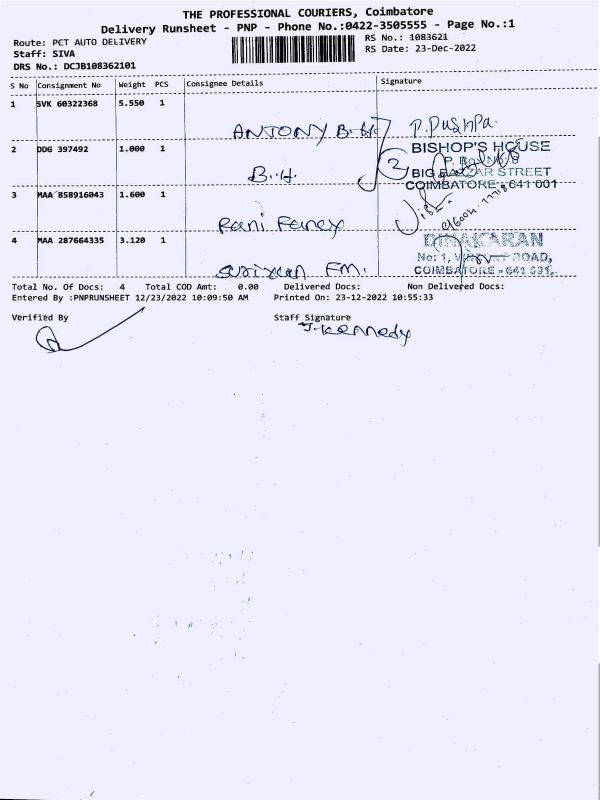 THE PROFESSIONAL COURIERS, Coimbatore
Delivery Runsheet - PNP - Phone No.:0422-3505555 - Page No.:1
Route: PCT AUTO DELIVERY
Staff: SIVA
DRS No.: DCJB108362101
RS No.: 1083621
RS Date: 23-Dec-2022
S No Consignment No Weight PCS Consignee Details Signature
1 SVK 60322368 5.550 1
ANTONY P. Pushpa.
2 DDG 397492 1.000 1
B.H. 2
BISHOP'S HOUSE
P. Box No: 6
BIG BAZZAR STREET
COIMBATORE - 641 001
3 MAA 858916043 1.600 1
Rani Fancy
4 MAA 287664335 3.120 1
suriyan FM.
DINAKARAN
No: 1, ROAD,
COIMBATORE - 641 031.
Total No. Of Docs: 4 Total COD Amt: 0.00 Delivered Docs: Non Delivered Docs:
Entered By :PNPRUNSHEET 12/23/2022 10:09:50 AM Printed On: 23-12-2022 10:55:33
Verified By Staff Signature
J. Kennedy